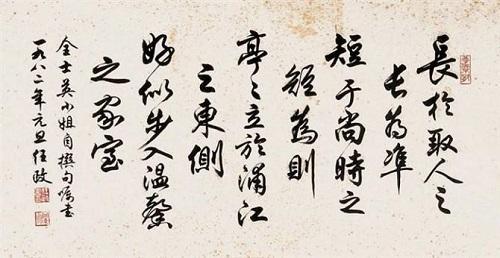 長於取人之
长為準
短于尚時之
短為則
亭亭立於浦江
之東側
好似步入温馨
之家室
金士英小姐自撰句嘱书
一九八二年元旦任政